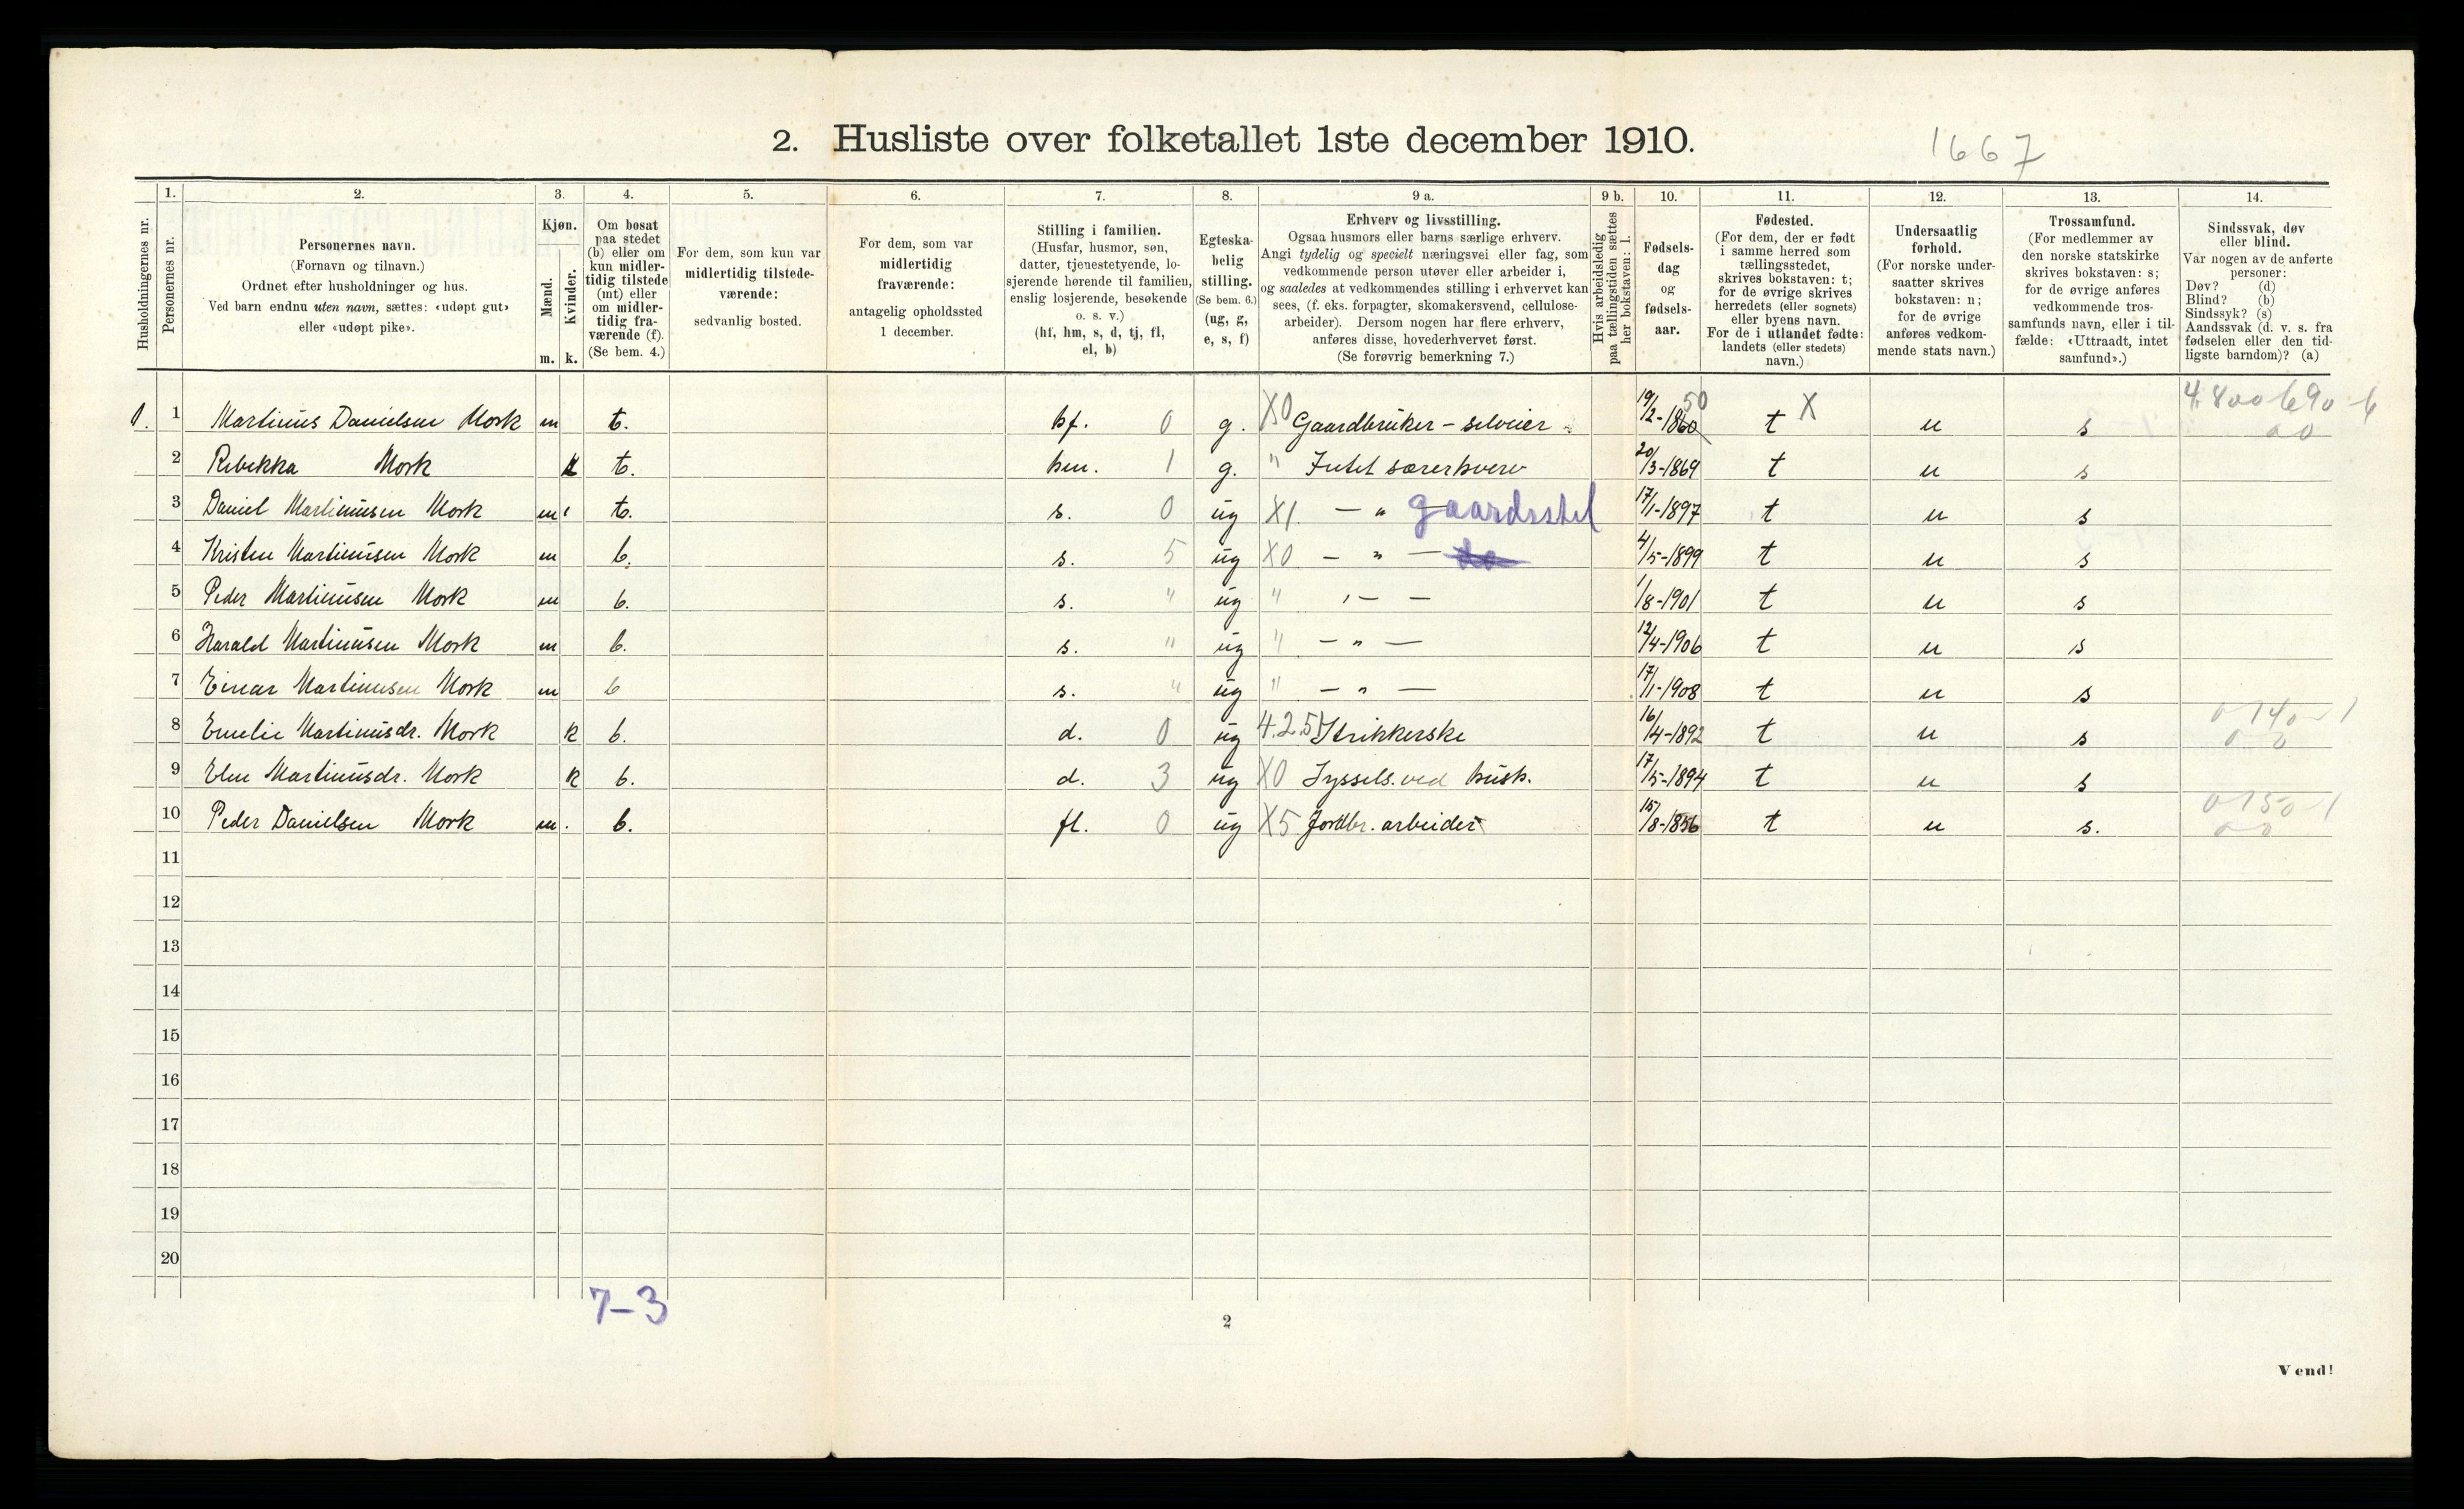 2. Husliste over folketallet 1ste december 1910.
1667
Husholdningernes nr.
1.
Personernes nr.
2.
Personernes navn.
(Fornavn og tilnavn.)
Ordnet efter husholdninger og hus.
Ved barn endnu uten navn, sættes: «udøpt gut»
eller «udøpt pike».
3.
Kjøn.
Mænd.
Kvinder.
m. k.
4.
Om bosat
paa stedet
(b) eller om
kun midler-
tidig tilstede
(mt) eller
om midler-
tidig fra-
værende (f).
(Se bem. 4.)
5.
For dem, som kun var
midlertidig tilstede-
værende:
sedvanlig bosted.
6.
For dem, som var
midlertidig
fraværende:
antagelig opholdssted
1 december.
7.
Stilling i familien.
(Husfar, husmor, søn,
datter, tjenestetyende, lo-
sjerende hørende til familien,
enslig losjerende, besøkende
o. s. v.)
(hf, hm, s, d, tj, fl,
el, b)
8.
Egteska-
belig
stilling.
(Se bem. 6.)
(ug, g,
e, s, f)
9 a.
Erhverv og livsstilling.
Ogsaa husmors eller barns særlige erhverv.
Angi tydelig og specielt næringsvei eller fag, som
vedkommende person utøver eller arbeider i,
og saaledes at vedkommendes stilling i erhvervet kan
sees, (f. eks. forpagter, skomakersvend, cellulose-
arbeider). Dersom nogen har flere erhverv,
anføres disse, hovederhvervet først.
(Se forøvrig bemerkning 7.)
9 b.
Hvis arbeidsledig
paa tællingstiden sættes
her bokstaven: l.
10.
Fødsels-
dag
og
fødsels-
aar.
11.
Fødested.
(For dem, der er født
i samme herred som
tællingsstedet,
skrives bokstaven: t;
for de øvrige skrives
herredets (eller sognets)
eller byens navn.
For de i utlandet fødte:
landets (eller stedets)
navn.)
12.
Undersaatlig
forhold.
(For norske under-
saatter skrives
bokstaven: n;
for de øvrige
anføres vedkom-
mende stats navn.)
13.
Trossamfund.
(For medlemmer av
den norske statskirke
skrives bokstaven: s;
for de øvrige anføres
vedkommende tros-
samfunds navn, eller i til-
fælde: «Uttraadt, intet
samfund».)
14.
Sindssvak, døv
eller blind.
Var nogen av de anførte
personer:
Døv? (d)
Blind? (b)
Sindssyk? (s)
Aandssvak (d. v. s. fra
fødselen eller den tid-
ligste barndom)? (a)
1 Martinus Danielsen Mork m b. hf. 0 g. X0 Gaardbruker - selveier 19/2-1860 50 t X n s
2 Rebekka Mork k b. hm. 1 g. " Intet særerhverv 20/3-1869 t n s
3 Daniel Martinusen Mork m b. s. 0 ug X1 — " gaardsstel 17/1-1897 t n s
4 Kristen Martinusen Mork m b. s. 5 ug X0 — " — do 4/5-1899 t n s
5 Peder Martinusen Mork m b. s. " ug " — — 1/8-1901 t n s
6 Harald Martinusen Mork m b. s. " ug " — " — 12/4-1906 t n s
7 Einar Martinusen Mork m b s. " ug " — " — 17/1-1908 t n s
8 Emelie Martinusdr. Mork k b. d. 0 ug 4.251 Strikkerske 16/4-1892 t n s 0-140-1
9 Eline Martinusdr. Mork k b. d. 3 ug X0 Syssels. ved hush. 17/5-1894 t n s
10 Peder Danielsen Mork m. b. fl. 0 ug X5 Jordbr. arbeider 15/8-1856 t n s. 0150-1
11
12
13
14
15
16
17
18
19
20
7-3
2
Vend!